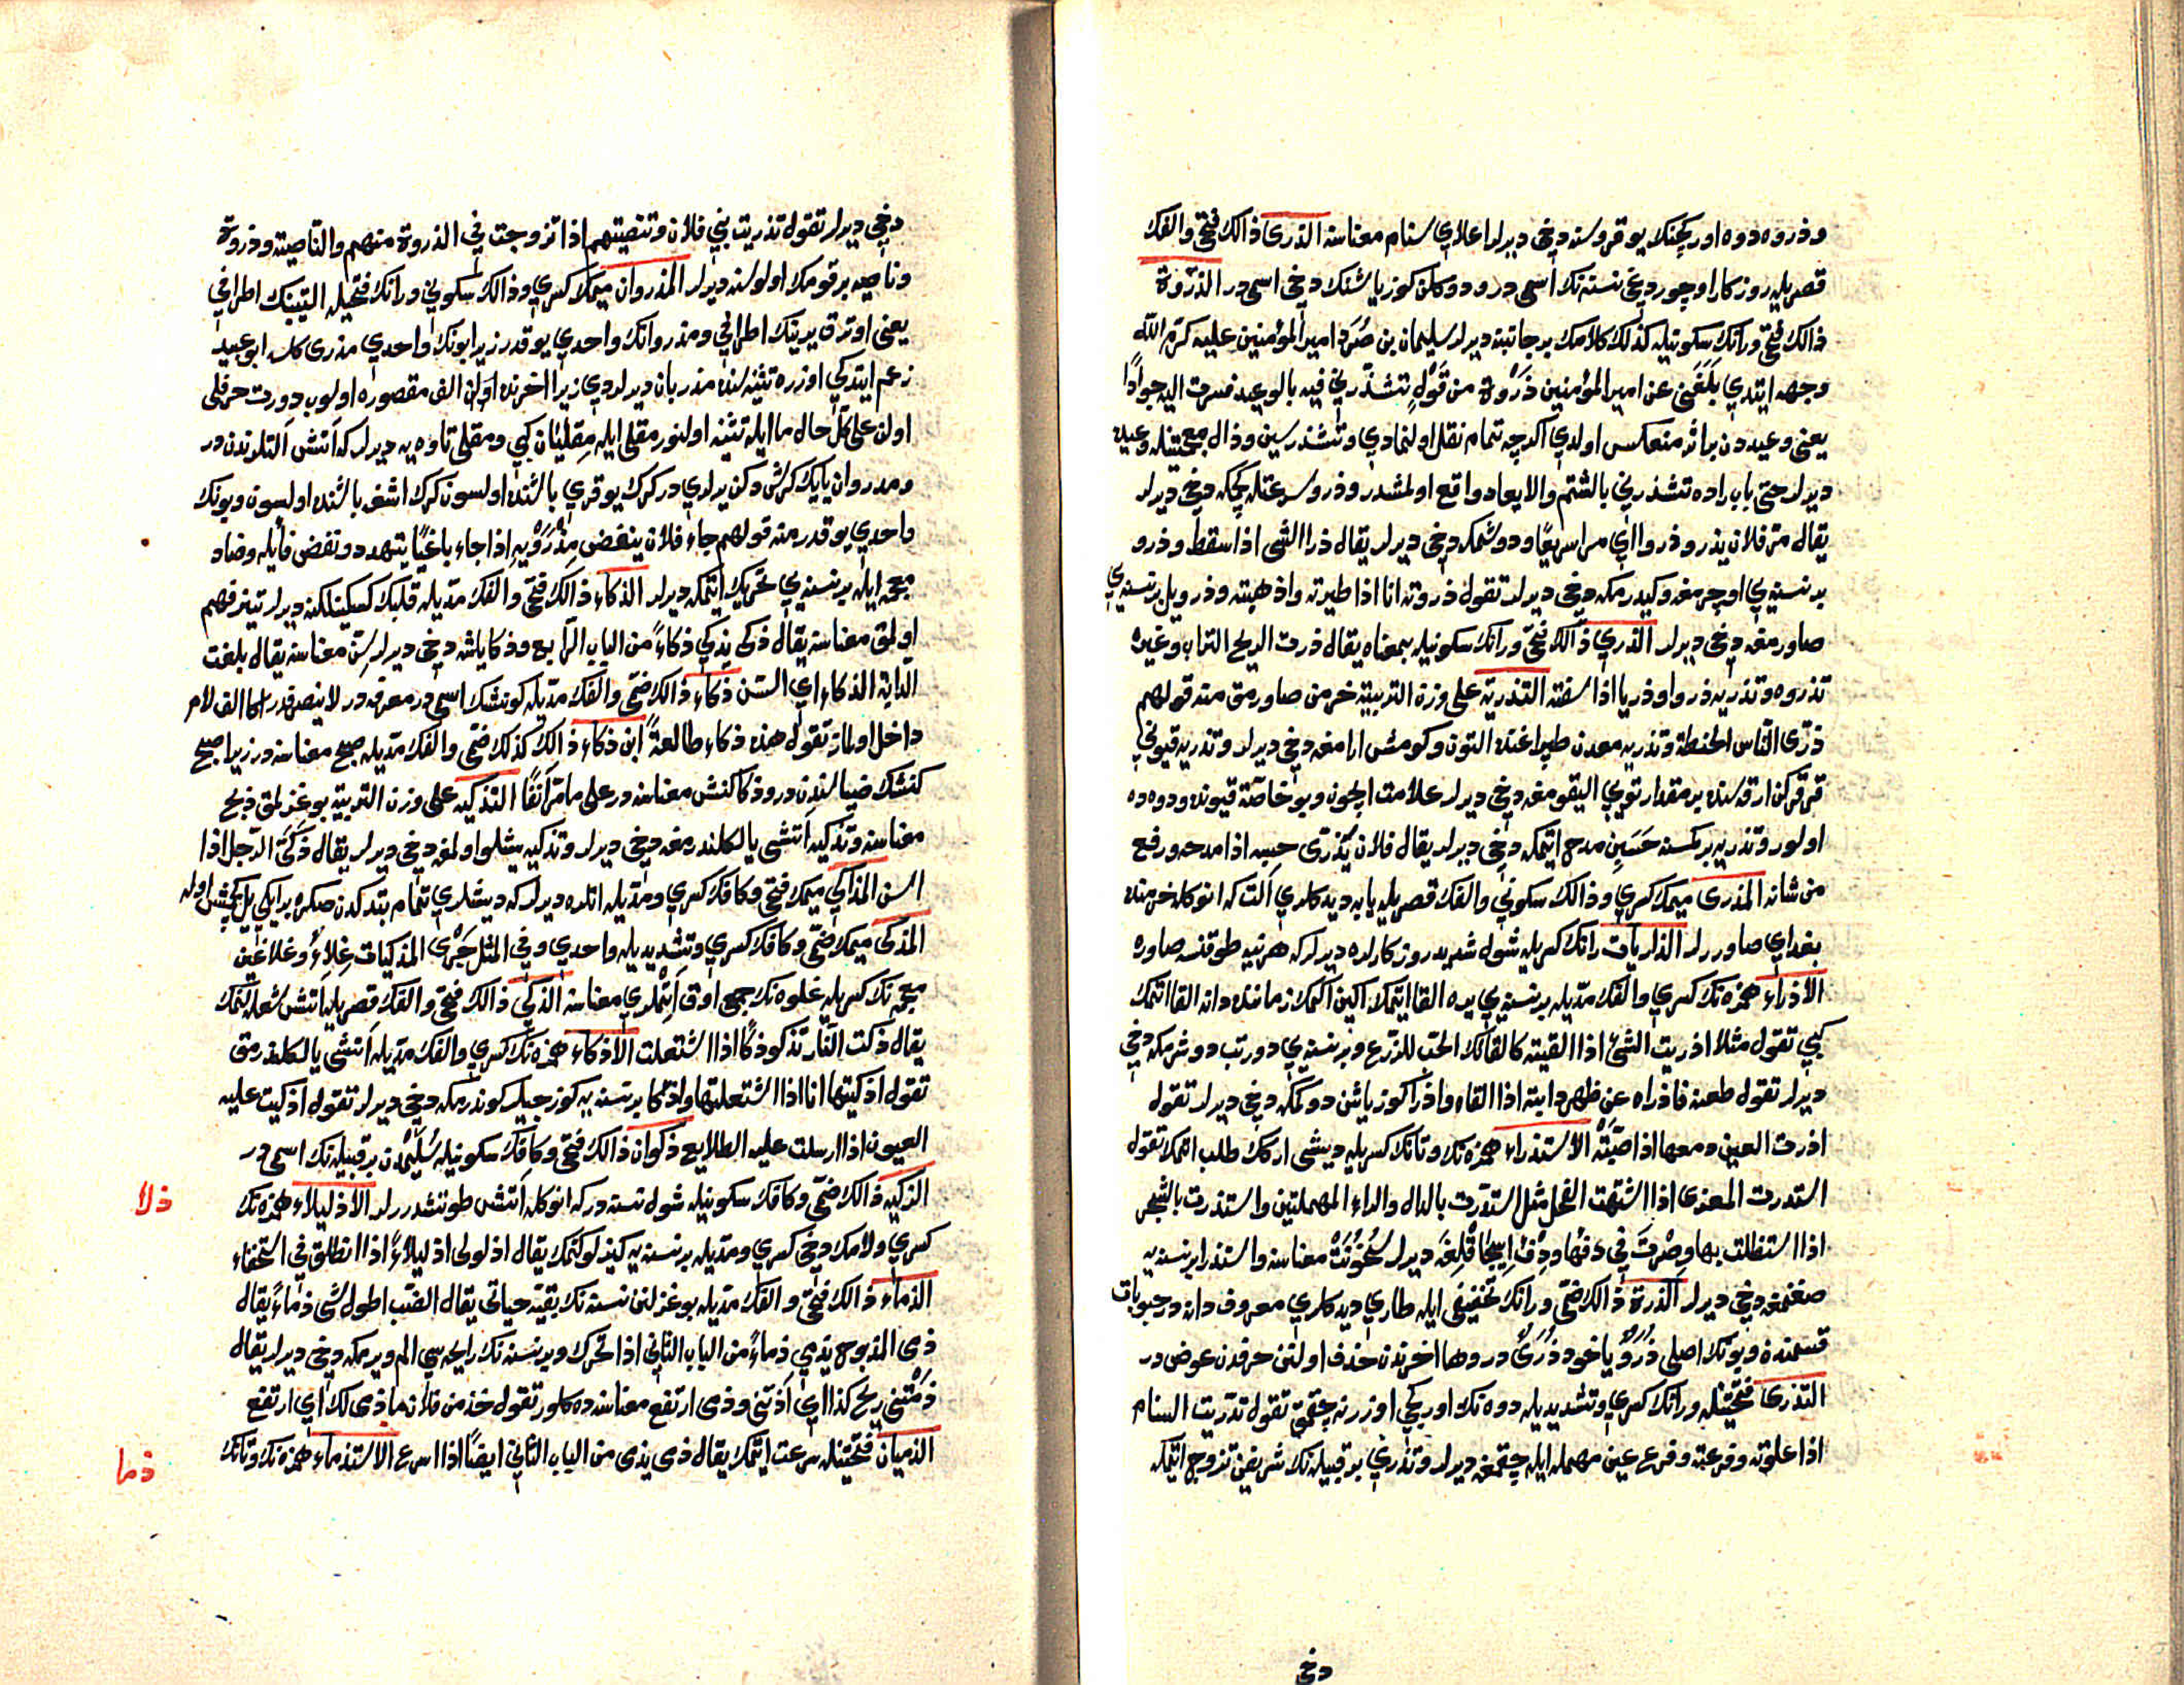 وذروه دوه اوركجنك يوقروسنه دخي ديرلر اعلاي سنام معناسنه الذرى ذالك فتحي والفك
قصريله روزكار اوچوردغي نسنه نك اسمى در ودوكلن كوز ياشنك دخي اسمى در الذروة
ذالك فتحي ورانك سكونيله كذلك كلامك برجانبنه ديرلر سليمان بن صرد امير المؤمنين عليه كرم الله
وجهه ايتدي بلغني عن امير المؤمنين ذروة من قول تشذر لي فيه بالوعيد فسرت اليه جوادا
يعنى وعيددن براثر منعكس اولدي اكرچه تمام نقل اولنمادي وتشذر سين وذال معجمتيله وعيده
ديرلر حتى باب راده تشذر لي بالشتم والايعاد واقع اولمشدر وذرو سرعتله كچمكه دخي ديرلر
يقال مر فلان يذرو ذروا اي مرا سريعا ودوشمكه دخي ديرلر يقال ذرا الشى اذا سقط وذرو
برنسنه يي اوچرمغه وكيدرمكه دخي ديرلر تقول ذروته انا اذا طيرته واذهبته وذرو يل برنسنه يي
صاورمغه دخي ديرلر الذري ذالك فتحي ورانك سكونيله بمعناه يقال ذرت الريح التراب وغيره
تذروه وتذريه ذروا وذريا اذا سفته التذرية على وزن التربية خرمن صاورمق منه قولهم
ذرى الناس الحنطة وتذريه معدن طپراغنده التون وكومش ارامغه دخي ديرلر وتذريه قيوني
قرقركن ارقه سنده بر مقدار توييي اليقومغه دخي ديرلر علامت ايچون وبو خاصة قيونده ودوه ده
اولور وتذريه بركسنه حسبن مدح ايتمكه دخي ديرلر يقال فلان يذرى حسبه اذا مدحه ورفع
من شانه المذرى ميمك كسري وذالك سكوني والفك قصريله يابه ديدكلري آلت كه انوكله خرمنده
بغدايي صاوررلر الذاريات رانك كسريله شول شديد روزكارلره ديرلر كه هرنيه طوقنسه صاوره
الاذراء همزه نك كسري والفك مديله برنسنه يي يره القا ايتمك اكين اكمك زماننده دانه القا اتمك
كبي تقول مثلا اذريت الشئ اذا القيته كالقائك الحب للزرع وبرنسنه يي دورتب دوشرمكه دخي
ديرلر تقول طعنه فاذراه عن ظهر دابته اذا القاه واذرا كوز ياشن دوكمكه دخي ديرلر تقول
اذرت العين دمعها اذا صبته الاستذراء همزه نك وتانك كسريله ديشى اركك طلب اتمك تقول
استذرت المعزى اذا اشتهت الفحل مثل استدرت بالدال والراء المهملتين واستذرت بالشجر
اذا استظللت بها وصرت في دفئها ودفء اسيجاقلغه ديرلر سخونت معناسنه واستذرا برنسنه يه
صغنمغه دخي ديرلر الذرة ذالك ضمي ورانك تخفيفى ايله طاري ديدكلري معروف دانه در حبوبات
قسمنده وبونك اصلى ذرو ياخود ذرى در وها اخرندن حذف اولنن حرفدن عوض در
التذرى فتحتيله ورانك كسري وتشديديله دوه نك اوركجي اوزرنه چقمق تقول تذريت السنام
اذا علوته وفرعته وفرع عين مهمله ايله چقمغه ديرلر وتذري بر قبيله نك شريفن تزوج ايتمكه
دخي
دخي ديرلر تقول تذريت بني فلان وتنصيتهم اذا تزوجت في الذروة منهم والناصية وذروة
وناصيه برقومك اولوسنه ديرلر المذروان ميمك كسري وذالك سكوني ورانك فتحيله اليتينك اطرافي
يعنى اوترق يرينك اطرافي ومذروانك واحدي يوقدر زيرا بونك واحدي مذرى كلسه ابو عبيد
زعم ايتدكي اوزره تثنيه لنده مذريان ديرلردي زيرا اخرنده اولن الف مقصوره اولوب دورت حرفلى
اولن على كل حال ما ايله تثنيه اولنور مقلى ايله مقليان كبي ومقلى تاوه يه ديرلر كه آتش التلرندن در
ومذروان يايك كرش دكن يرلري در كرك يوقري باشنده اولسون كرك اشغه باشنده اولسون وبونك
واحدي يوقدر منه قولهم جاء فلان ينفض مذرويه اذا جاء باغيا يتهدد ونفض فايله وضاد
معجمه ايله برنسنه يي تحريك ايتمكه ديرلر الذكاء ذالك فتحي والفك مديله قلبك كسكينلكنه ديرلر تيز فهم
اولمق معناسنه يقال ذكى يذكي ذكاء من الباب الرابع وذكا ياشه دخي ديرلر سن معناسنه يقال بلغت
الدابة الذكاء اي السن ذكاء ذالك ضمي والفك مديله كونشك اسمى در معرفه در لاينصرفدر اكا الف لام
داخل اولماز تقول هذه ذكاء طالعة ابن ذكاء ذالك كذلك ضمي والفك مديله صبح معناسنه در زيرا صبح
كنشك ضياسندن در وذكا كنش معناسنه در على ما مر آنفا التذكيه على وزن التربية بوغزلمق ذبح
معناسنه وتذكيه آتشى يالكلندرمغه دخي ديرلر وتذكيه يشلو اولمغه دخي ديرلر يقال ذكى الرجل اذا
اسن المذاكي ميمك فتحي وكافك كسري ومديله اتلره ديرلر كه ديشلري تمام بتدكدن صكره بر ايكي ييل كچمش اوله
المذكى ميمك ضمي وكافك كسري وتشديديله واحدي وفي المثل جري المذكيات غلاء وغلا غين
معجمه نك كسريله غلوه نك جمع اوق آتملري معناسنه الذكي ذالك فتحي والفك قصريله آتش شعله لنمك
يقال ذكت النار تذكو ذكا اذا اشتعلت الاذكاء همزه نك كسري والفك مديله آتشى يالكلندرمق
تقول اذكيتها انا اذا اشتعلتها واذكا برنسنه يه كوزجيلر كوندرمكه دخي ديرلر تقول اذكيت عليه
العيون اذا ارسلت عليه الطلايع ذكوان ذالك فتحي وكافك سكونيله سليمدن بر قبيله نك اسمى در
الذكيه ذالك ضمي وكافك سكونيله شول نسنه در كه انوكله آتش طوتشدررلر الاذليلاء همزه نك
ذلا
كسري ولامك دخي كسري ومديله برنسنه يه كيزلو كتمك يقال اذلولى اذليلاء اذا انطلق في استخفاء
الذماء ذالك فتحي والفك مديله بوغزلنن نسنه نك بقيه حياتى يقال الضب اطول شى ذماء يقال
ذمى المذبوح يذمي ذماء من الباب الثاني اذا تحرك وبرنسنه نك رايحه سي الم ويرمكه دخي ديرلر يقال
ذمتني ريح كذا اي آذتني وذمى ارتفع معناسنه ده كلور تقول خذ من فلان ما ذمى لك اي ارتفع
الذميان فتحتيله سرعت ايتمك يقال ذمى يذمى من الباب الثاني ايضا اذا اسرع الاستذماء همزه نك وتانك
ذما